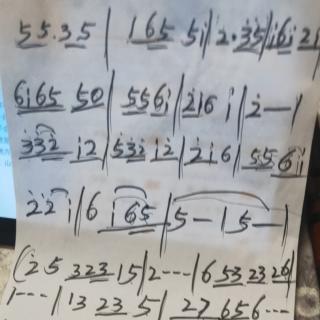 55.35 | 165 5i | 2·35 | i6i 2i
6i65 50 | 556i | 2i6 i | 2 — |
332 i2 | 532 i2 | 2i6 | 556i i
22 i | 6 i65 | 5 — | 5 — |
(25 323 15 | 2 --- | 6 53 23 26 |
1 --- | 13 23 5 | 27 656 ---